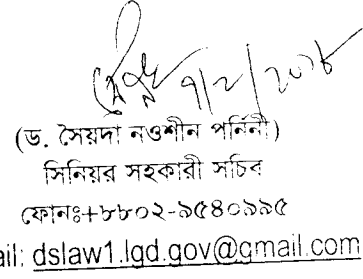 ৭/২/২০১৮
(ড. সৈয়দা নওশীন পর্ণিনী)
সিনিয়র সহকারী সচিব
ফোনঃ+৮৮০২-৯৫৪০৯৯৫
ail: dslaw1.lgd.gov@gmail.com